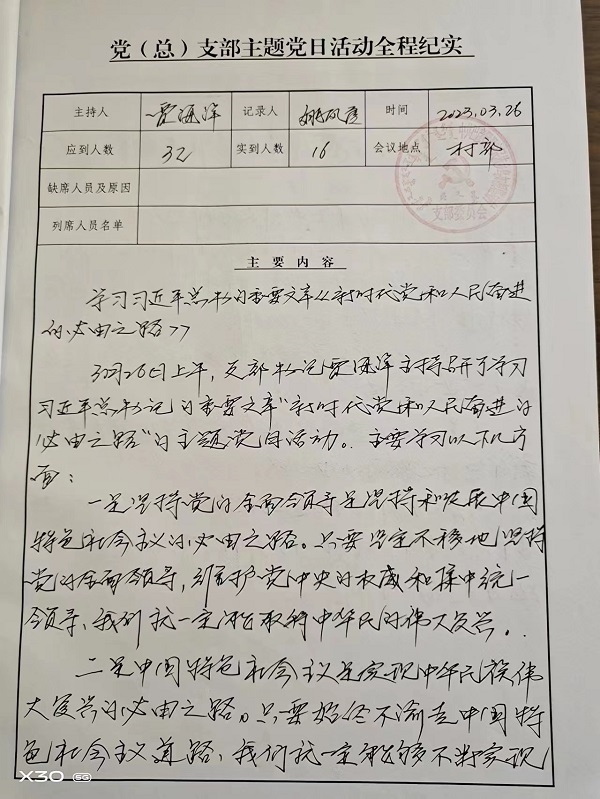 党（总）支部主题党日活动全程纪实
主持人 贾海洋 记录人 时间 2023.03.26
应到人数 32 实到人数 16 会议地点 村部
缺席人员及原因
列席人员名单
支部委员会
主要内容
学习习近平总书记的重要文章《新时代党和人民奋进
的必由之路》
3月26日上午，支部书记贾海洋主持召开了学习
习近平总书记的重要文章"新时代党和人民奋进的
必由之路"的主题党日活动。主要学习以下几方
面：
一是坚持党的全面领导是坚持和发展中国
特色社会主义的必由之路。只要坚定不移地坚持
党的全面领导，维护党中央的权威和集中统一
领导、我们就一定能取得中华民的伟大复兴。
二是中国特色社会主义是实现中华民族伟
大复兴的必由之路。只要始终不渝走中国特
色社会主义道路、我们就一定能够不断实现
X30 5G